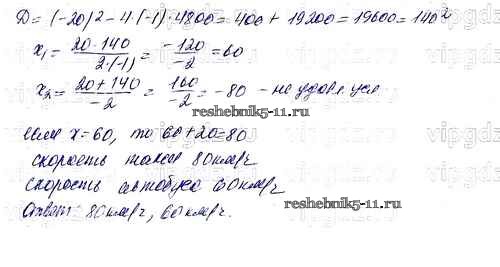 D = (-20)² - 4·(-1)·4800 = 400 + 19200 = 19600 = 140²
x₁ = (20-140)/(2·(-1)) = -120/-2 = 60
x₂ = (20+140)/-2 = 160/-2 = -80 - не удовл. усл
reshebnik5-11.ru
если x = 60, то 60+20=80
скорость такси 80 км/ч
скорость автобуса 60 км/ч
Ответ: 80 км/ч, 60 км/ч.
reshebnik5-11.ru